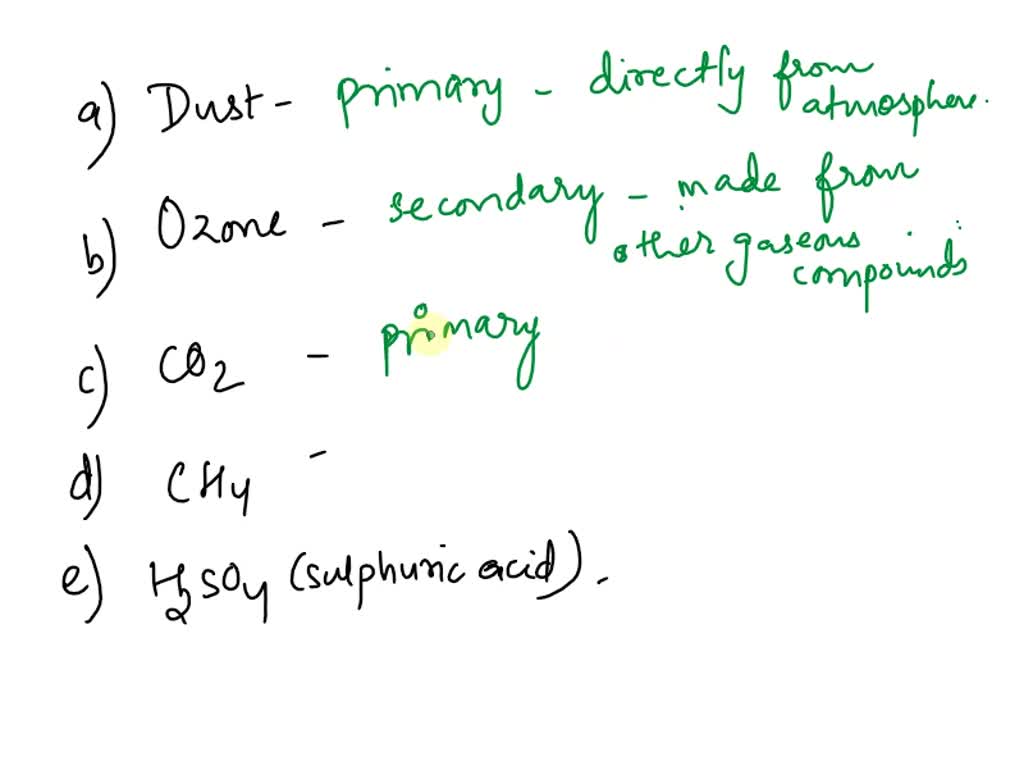 a) Dust - primary - directly from
atmosphere.
b) Ozone - secondary - made from
other gaseous
compounds
c) CO2 - primary
d) CH4 -
e) H2SO4 (sulphuric acid).